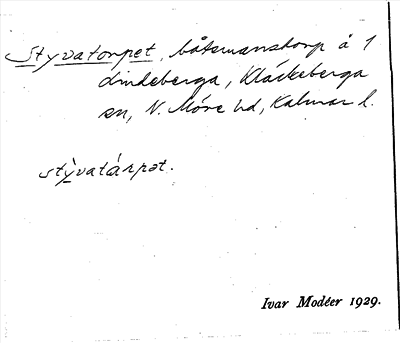 Styvatorpet, båtsmanstorp å 1
Lindeberga, Kläckeberga
sn, N. Möre hd, Kalmar l.
stỳvatárpət.
Ivar Modéer 1929.